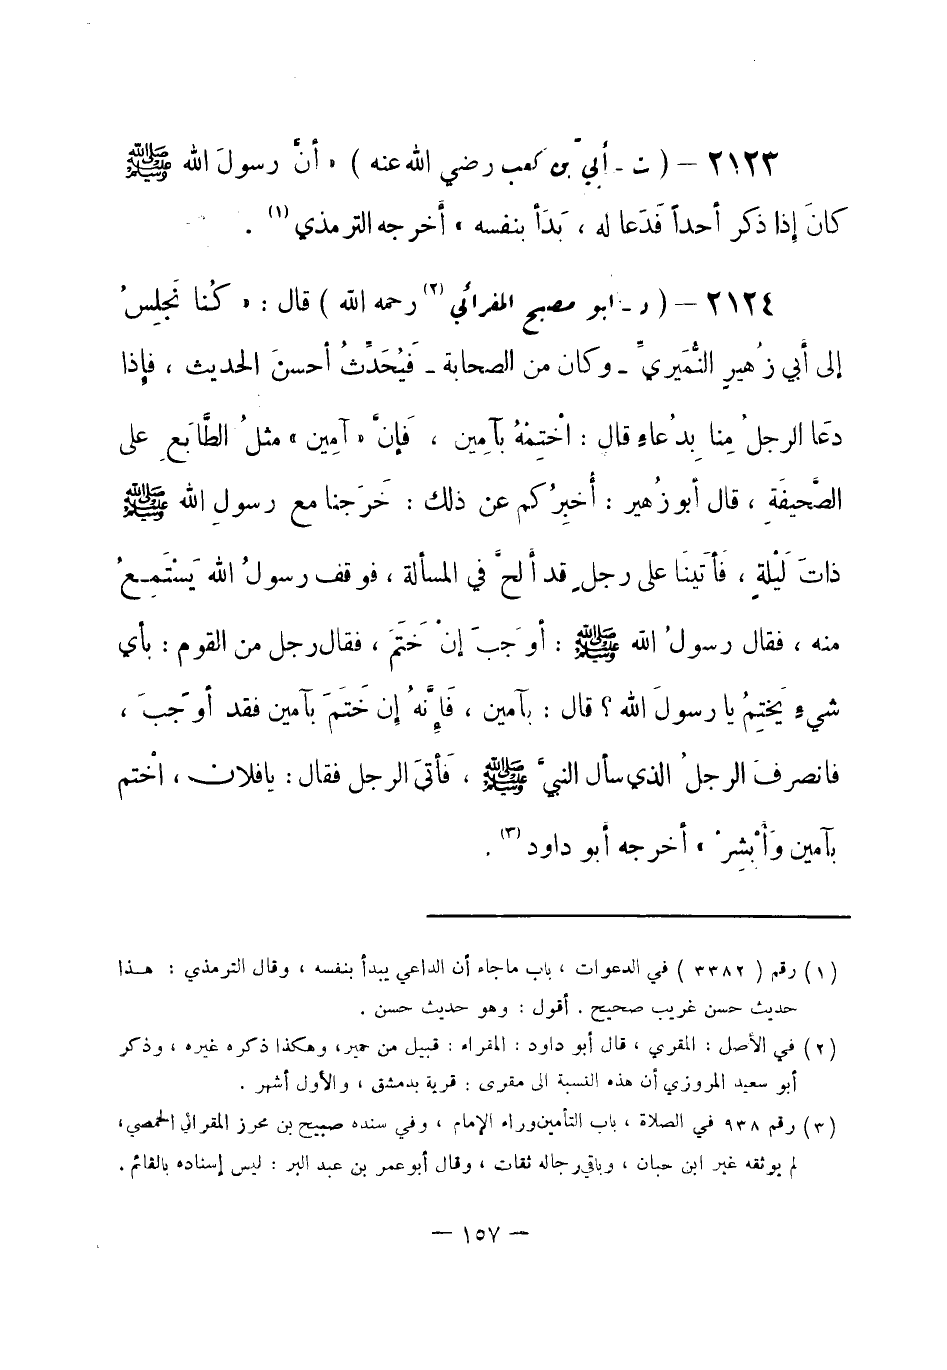 ٢١٢٣ – ( ت ـ أُبَيّ بن كعب رضي الله عنه ) « أنَّ رسولَ الله ﷺ
كانَ إذا ذكر أحداً فَدَعا له ، بَدَأ بنفسه » أخرجه الترمذي (١) .
٢١٢٤ – ( د ـ ابو مصبح المقرائي (٢) رحمه الله ) قال : « كُنا نَجلِسُ
إلى أبي زُهيرٍ النُّمَيريِّ ـ وكان من الصحابة ـ فَيُحَدِّثُ أحسنَ الحديث ، فإذا
دَعَا الرجلُ مِنا بِدُعاءٍ قال : اخْتِمْهُ بآمِين ، فَإنَّ « آمِين » مثلُ الطَّابَعِ على
الصَّحيفَةِ ، قال أبو زُهير : أُخبِرُكم عن ذلك : خَرَجنا مع رسولِ الله ﷺ
ذاتَ لَيْلةٍ ، فَأتَينَا على رجلٍ قد ألحَّ في المسألة ، فوقف رسولُ الله يَسْتَمِـعُ
منه ، فقال رسولُ الله ﷺ : أوَجَبَ إنْ خَتَمَ ، فقال رجل من القوم : بأي
شيءٍ يَختِمُ يا رسولَ الله ؟ قال : بآمين ، فَإنَّهُ إن خَتَمَ بآمين فقد أوَجَبَ ،
فانصرفَ الرجلُ الذي سأل النبيَّ ﷺ ، فَأتى الرجل فقال : يا فلان ، اخْتم
بآمين وَأبْشِرْ » أخرجه أبو داود (٣) .
(١) رقم ( ٣٣٨٢ ) في الدعوات ، باب ما جاء أن الداعي يبدأ بنفسه ، وقال الترمذي : هـذا
حديث حسن غريب صحيح . أقول : وهو حديث حسن .
(٢) في الأصل : المقري ، قال أبو داود : المقراء : قبيل من حمير، وهكذا ذكره غيره ، وذكر
أبو سعيد المروزي أن هذه النسبة الى مقرى : قرية بدمشق ، والأول أشهر .
(٣) رقم ٩٣٨ في الصلاة ، باب التأمين وراء الإمام ، وفي سنده صبيح بن محرز المقرائي الحمصي،
لم يوثقه غير ابن حبان ، وباقي رجاله ثقات ، وقال أبو عمر بن عبد البر : ليس إسناده بالقائم .
— ١٥٧ —